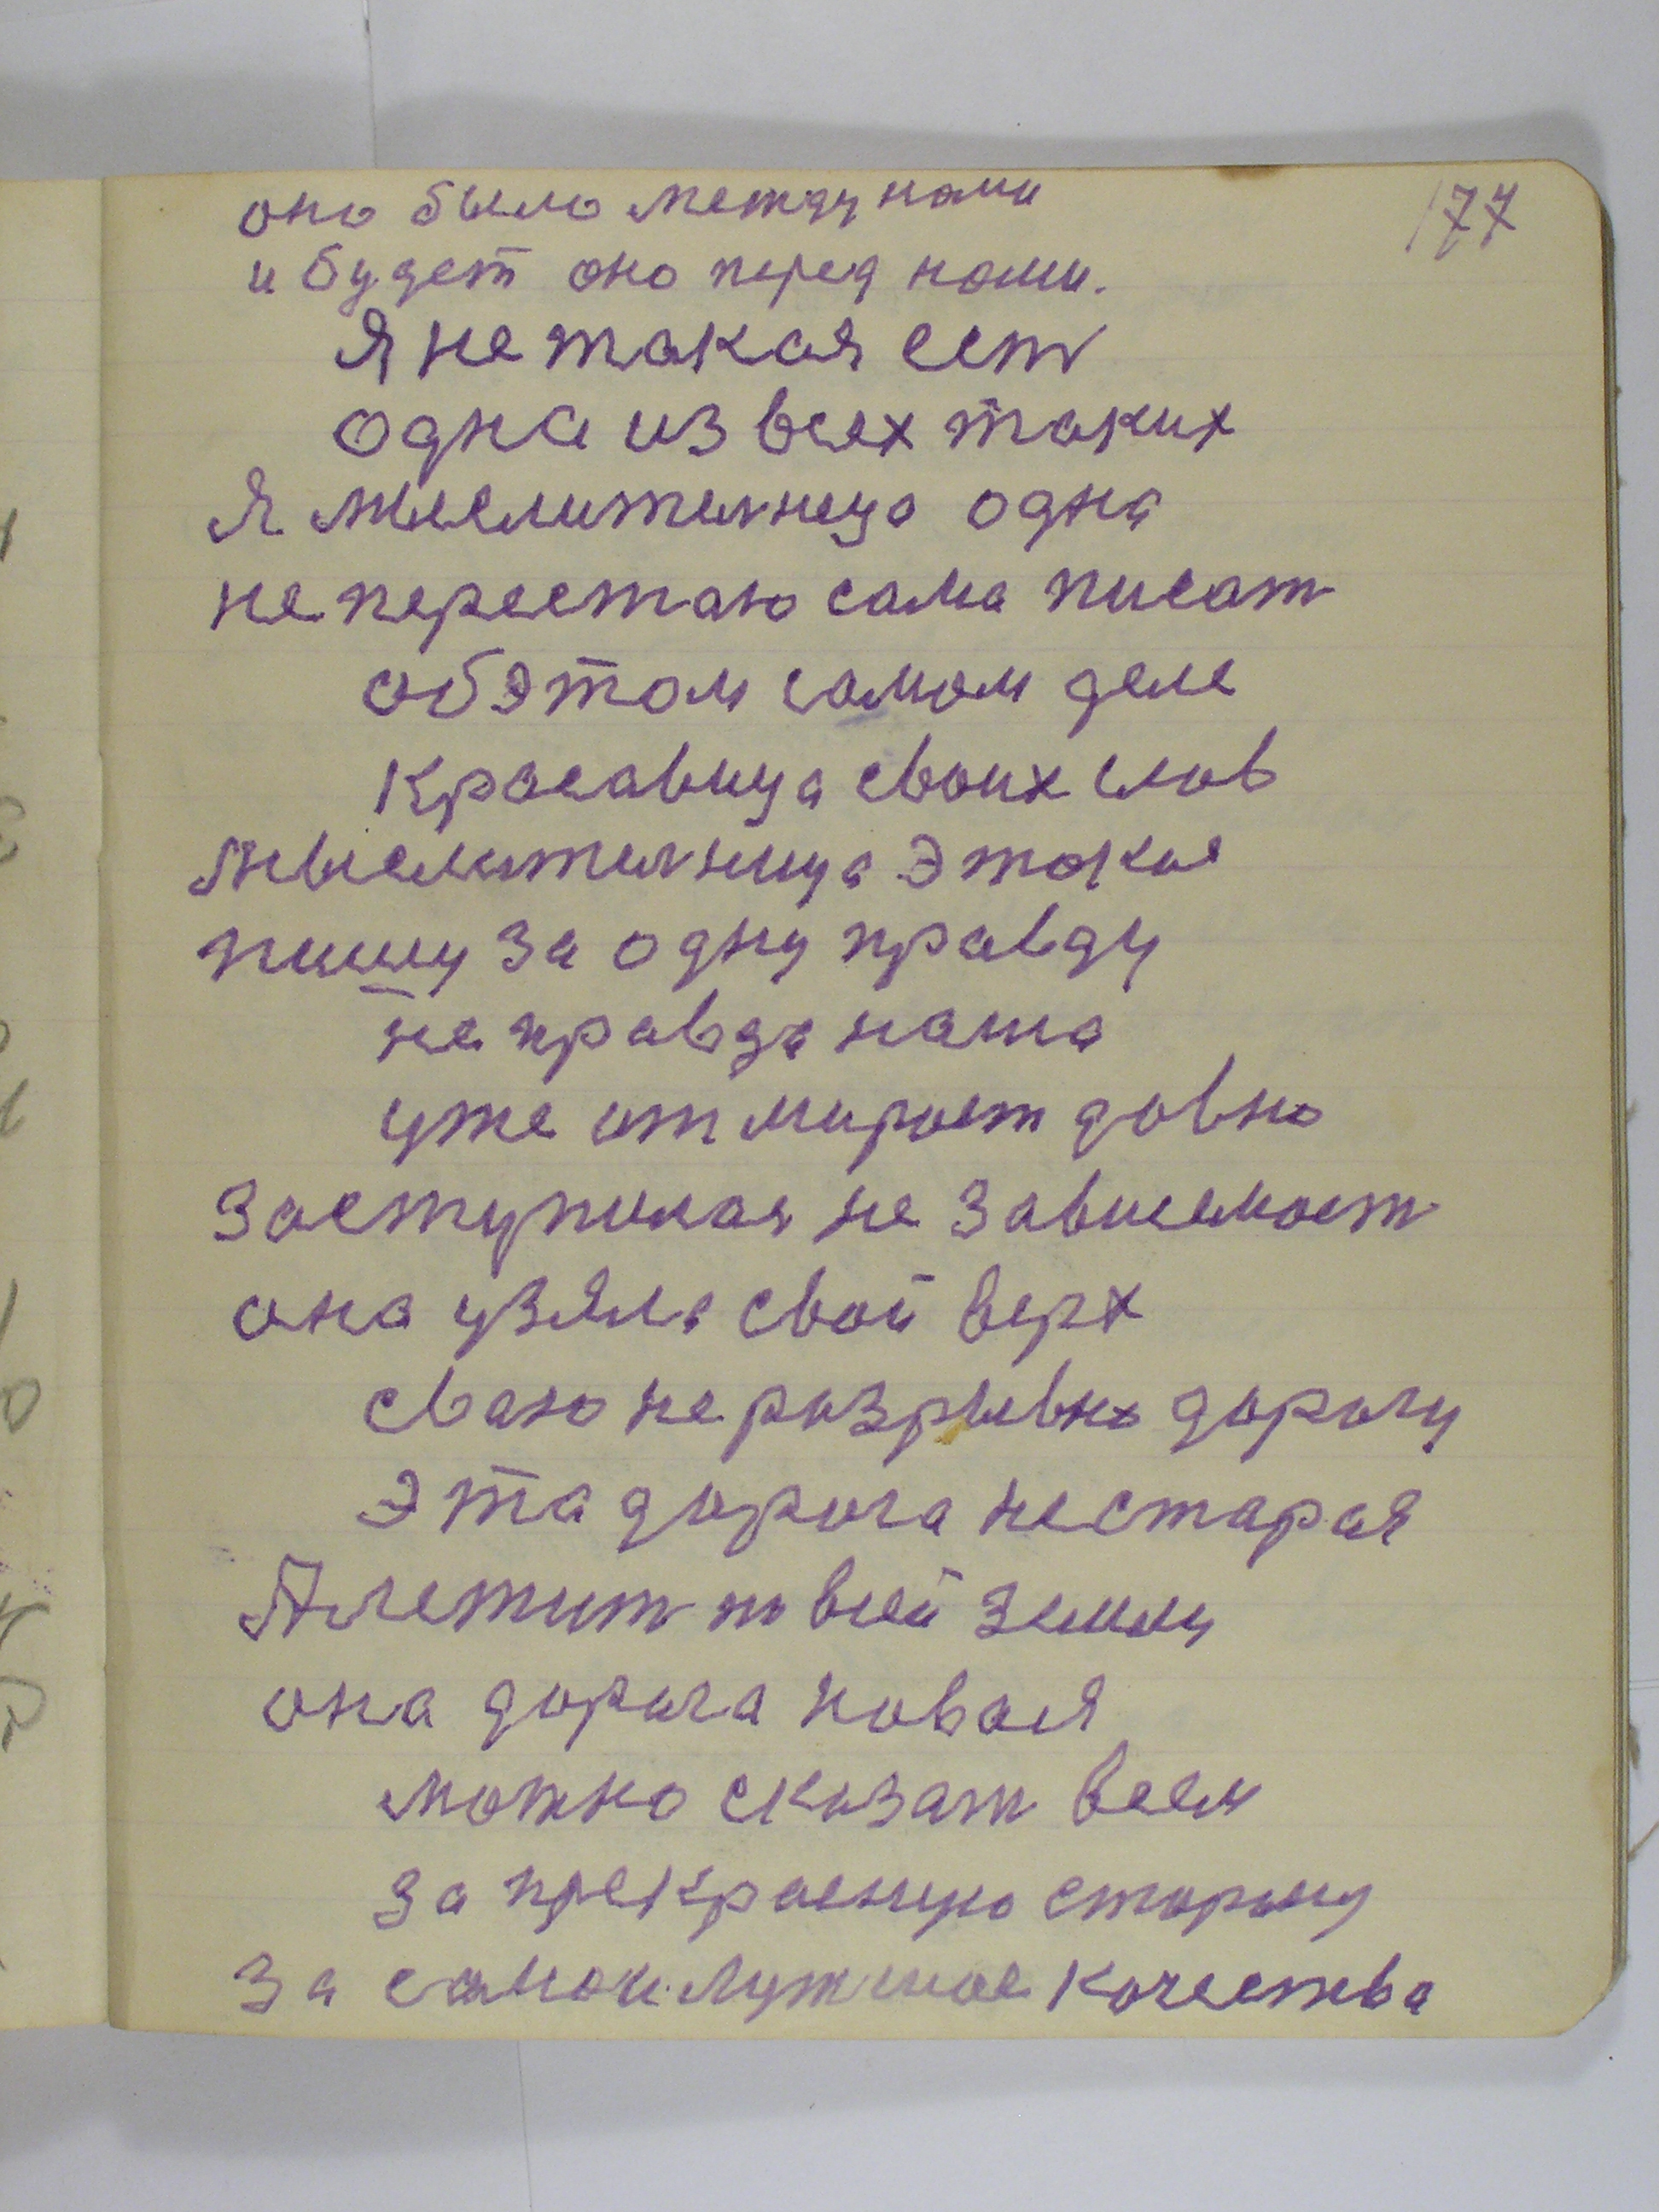 177
оно было между нами
и будет оно перед нами.
Я не такая ест
одна из всех таких
Я мыслителница одна
не перестаю сама писат
об этом самом деле
красавица своих слов
Мыслителница этакая
пишу за одну правду
не правда наша
уже отмирает давно
Заступилая не зависемост
она узяла свой верх
сваю не разрывно дорогу
Эта дорога не старая
А летит по всей землы
она дорога новая
можно сказат всем
за прекрасную сторону
За самои лутшое качества